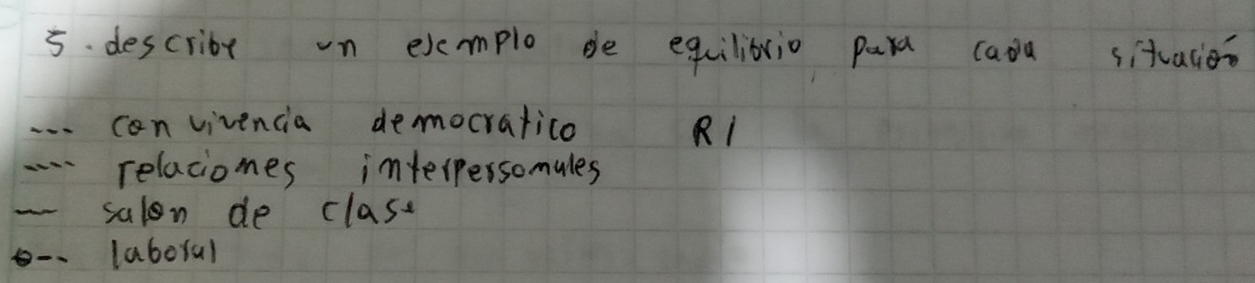 5. describe un ejemplo de equilibrio, para cada situación
--- convivencia democratico R/
---- relaciones interpersonales
-- salon de clase
--- laboral